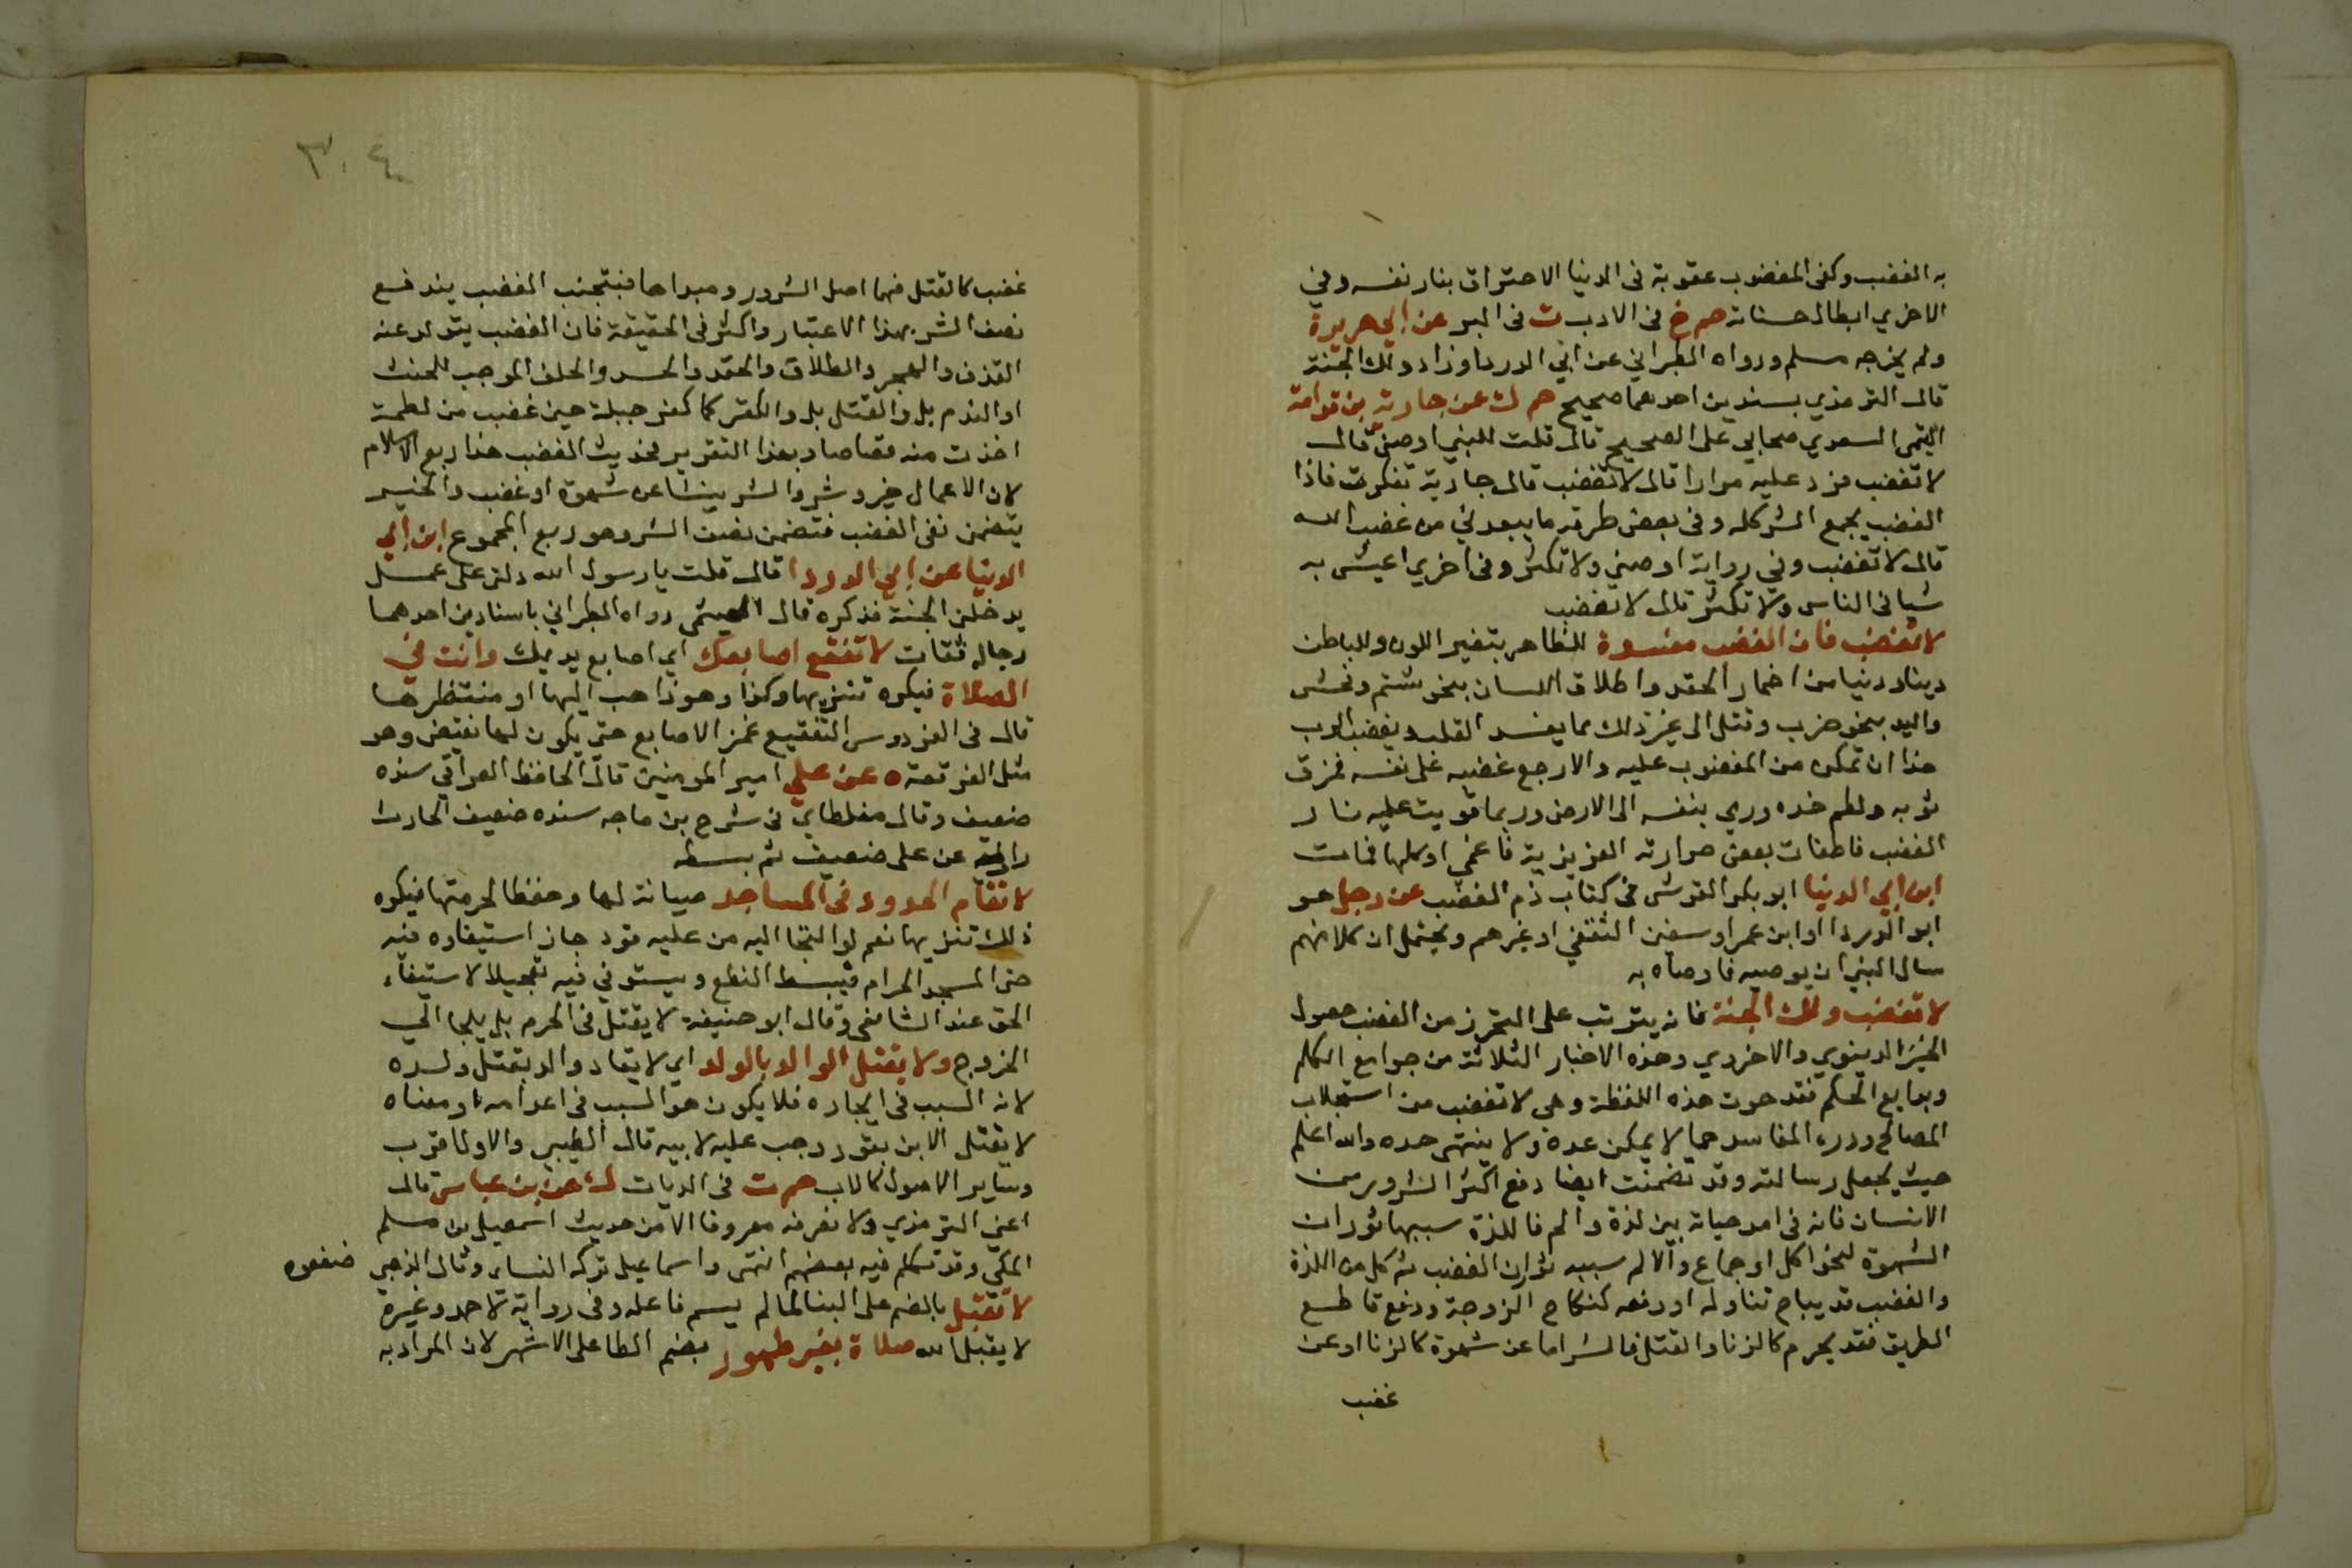 به الغضب وكفى المغضوب عقوبة فى الدنيا الاحتراق بنار نفسه وفى
الاخري ابطال حسناته حم خ فى الادب ت فى البر عن ابي هريرة
ولم يخرجه مسلم ورواه الطبراني عن ابي الدردا وزاد ولك الجنة
قال الترمذي بسندين احدهما صحيح حم ك عن جارية بن قدامة
التيمى السعدي صحابي على الصحيح قال قلت للنبي اوصنى قال
لا تغضب فرد عليه مرارا قال لا تغضب قال جارية تفكرت فاذا
الغضب يجمع الشر كله وفى بعض طرقه ما يبعدني من غضب الله
قال لا تغضب وفي رواية اوصني ولا تكثر وفى اخري اعيش به
شيا فى الناس ولا تكثر قال لا تغضب
لا تغضب فان الغضب مفسدة للظاهر بتغير اللون وللباطن
دينا ودنيا من اضمار الحقد واطلاق اللسان بنحو شتم وفحش
واليد بنحو ضرب وقتل الى غير ذلك مما يفسد القلب ويغضب الرب
هذا ان تمكن من المغضوب عليه والا رجع غضبه على نفسه فمزق
ثوبه ولطم خده ورمي بنفسه الى الارض وربما قويت عليه نار
الغضب فاطفات بعض حرارته الغزيزية فاغمي او كلها فمات
ابن ابي الدنيا ابو بكر القرشى فى كتاب ذم الغضب عن رجل هو
ابو الدردا او ابن عمر او سفين الثقفي او غيرهم ويحتمل ان كلا منهم
سال النبي ان يوصيه فاوصاه به
لا تغضب ولك الجنة فانه يترتب على التحرز من الغضب حصول
الخير الدنيوي والاخروي وهذه الاخبار الثلاثة من جوامع الكلم
وبدايع الحكم فقد حوت هذه اللفظة وهى لا تغضب من استجلاب
المصالح ودرء المفاسد مما لا يمكن عده ولا ينتهى حده والله اعلم
حيث يجعل رسالته وقد تضمنت ايضا دفع اكثر الشرور من
الانسان فانه فى امد حياته بين لذة والم فاللذة سببها ثوران
الشهوة لنحو اكل او جماع والالم سببه ثوران الغضب ثم كل من اللذة
والغضب قد يباح تناوله او دفعه كنكاح الزوجة ودفع قاطع
الطريق فقد يحرم كالزنا والقتل فالشر اما عن شهوة كالزنا او عن
غضب
٣٠٤
غضب كالقتل فهما اصل الشرور ومبداها فبتجنب الغضب يندفع
نصف الشر بهذا الاعتبار واكثر فى الحقيقة فان الغضب يتولد عنه
القذف والهجر والطلاق والحقد والحسد والحلف الموجب للحنث
او الندم بل والقتل بل والكفر كما كفر جبلة حين غضب من لطمة
اخذت منه قصاصا وبهذا التقرير فحديث الغضب هذا ربع الاسلام
لان الاعمال خير وشر والشر ينشا عن شهوة او غضب والخبر
يتضمن نفى الغضب فتضمن نصف الشر وهو ربع المجموع ابن ابي
الدنيا عن ابي الدردا قال قلت يا رسول الله دلنى على عمل
يدخلن الجنة فذكره قال الهيثمى رواه الطبراني باسنادين احدهما
رجاله ثقات لا تفقع اصابعك اي اصابع يديك وانت في
الصلاة فيكره تنزيها وكذا وهو ذاهب اليها او منتظرها
قال فى الفردوس التفقيع غمز الاصابع حتى يكون لها نقيض وهو
مثل الفرقعة ه عن علي امير المومنين قال الحافظ العراقي سنده
ضعيف وقال مغلطاي فى شرح بن ماجه سنده ضعيف الحارث
راويه عن على ضعيف ثم بسطه
لا تقام الحدود فى المساجد صيانة لها وحفظا لحرمتها فيكره
ذلك تنزيها نعم لو التجا اليه من عليه قود جاز استيفاوه منه
حتى المسجد الحرام فيبسط النطع ويستوفي فيه تعجيلا لاستيفاء
الحق عند الشافعى وقال ابو حنيفة لا يقتل فى الحرم بل يلجا الي
الخروج ولا يقتل الوالد بالولد اي لا يقاد والد بقتل ولده
لانه السبب فى ايجاده فلا يكون هو السبب فى اعدامه او معناه
لا يقتل الابن بقود وجب عليه لابيه قال الطيبى والاول اقرب
وساير الاصول كالاب حم ت فى الديات ك عن بن عباس قال
اعني الترمذي ولا نعرفه معروفا الا من حديث اسمعيل بن مسلم
المكي وقد تكلم فيه بعضهم انتهى واسماعيل تركه النساى وقال الذهبى ضعفوه
لا تقبل بالضم على البنا لما لم يسم فاعله وفى رواية لاحمد وغيره
لا يقبل الله صلاة بغير طهور بضم الطا على الاشهر لان المراد به